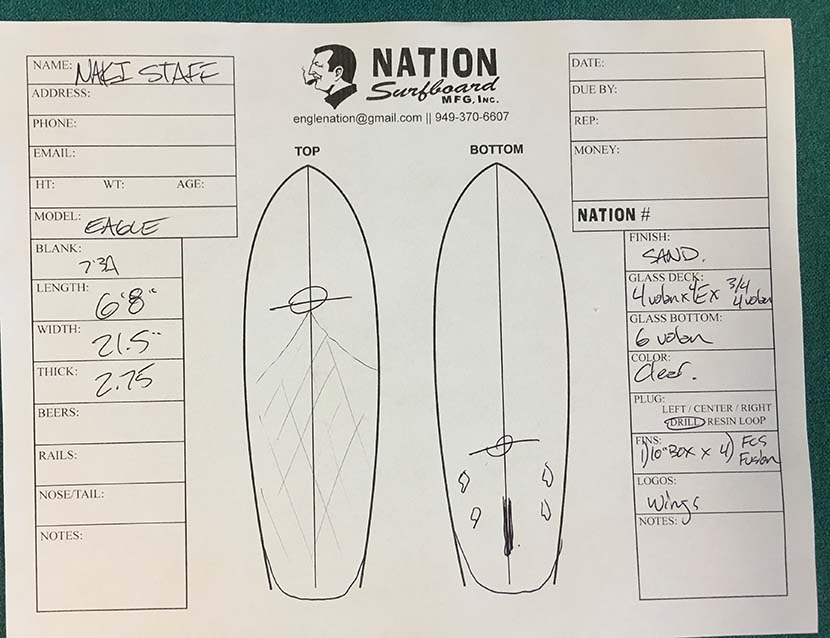 NAME: NAKI STAFF
ADDRESS:
PHONE:
EMAIL:
HT: WT: AGE:
MODEL: EAGLE
BLANK:
7'3A
LENGTH:
6'8"
WIDTH:
21.5"
THICK:
2.75
BEERS:
RAILS:
NOSE/TAIL:
NOTES:
NATION
Surfboard
MFG, INC.
englenation@gmail.com || 949-370-6607
TOP
BOTTOM
DATE:
DUE BY:
REP:
MONEY:
NATION #
FINISH:
SAND.
GLASS DECK:
4 volan x 4E x 3/4
4 volan
GLASS BOTTOM:
6 volan
COLOR:
Clear.
PLUG:
LEFT / CENTER / RIGHT
DRILL RESIN LOOP
FINS:
1) 10" BOX x 4) FCS
Fusion
LOGOS:
Wings
NOTES: